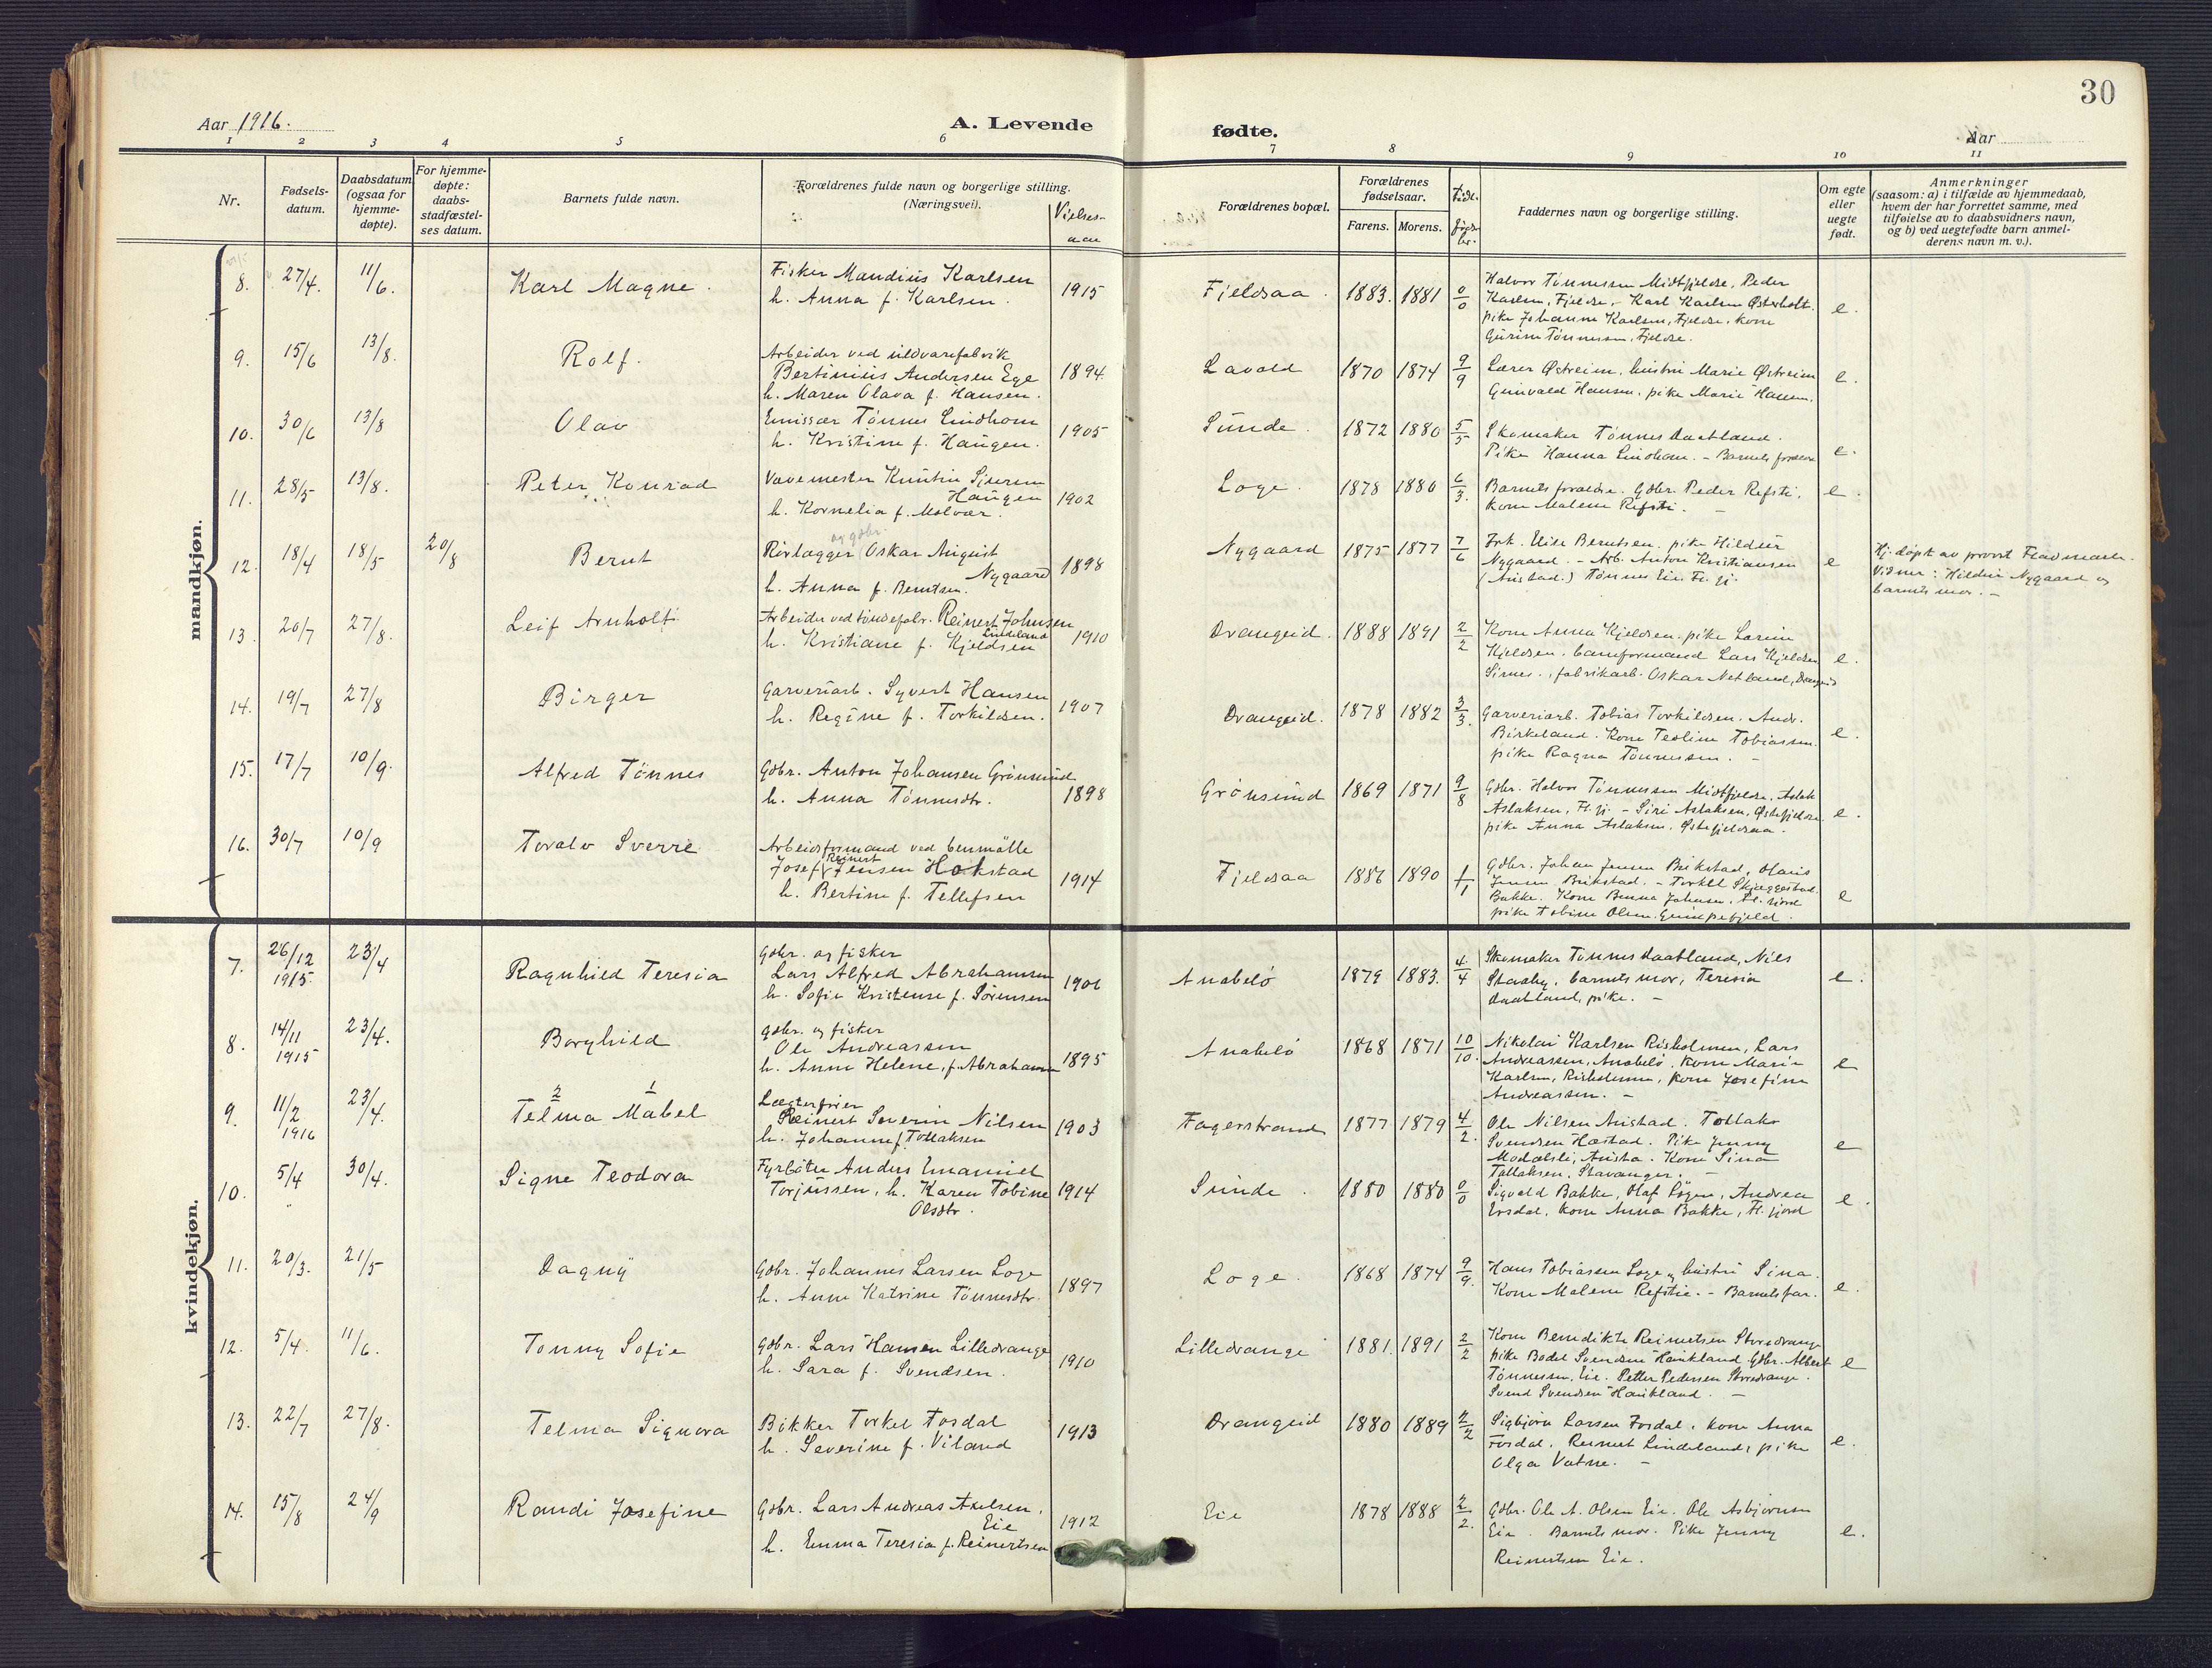 30
Aar 1916.
A. Levende fødte.
Aar
1 2 3 4 5 6 7 8 9 10 11
Nr.
Fødsels-
datum.
Daabsdatum
(ogsaa for
hjemme-
døpte).
For hjemme-
døpte:
daabs-
stadfæstel-
ses datum.
Barnets fulde navn.
Forældrenes fulde navn og borgerlige stilling.
(Næringsvei).
Vielses-
aar
Forældrenes bopæl.
Forældrenes
fødselsaar.
Farens. Morens.
Faddernes navn og borgerlige stilling.
Om egte
eller
uegte
født.
Anmerkninger
(saasom: a) i tilfælde av hjemmedaab,
hvem der har forrettet samme, med
tilføielse av to daabsvidners navn,
og b) ved uegtefødte barn anmel-
derens navn m. v.).
mandkjøn.
8. 27/4. 11/6. Karl Magne.
Fisker Mandius Karlsen
h. Anna f. Karlsen.
1915 Fjeldsaa. 1883. 1881 0/0
Halvor Tønnessen Midtfjeldsa, Peder
Karlsen, Fjeldsa, - Karl Karlsen Østerholt.
pike Johanne Karlsen, Fjeldsa, kone
Gurine Tønnessen, Fjeldsa.
e.
9. 15/6 13/8. Rolf.
Arbeider ved uldvarefabrik
Bertinius Andersen Ege
h. Maren Olava f. Hansen.
1894 Lavold 1870 1874 9/9
Lærer Østreim, hustru Marie Østreim
Gunvald Hansen, pike Marie Hansen.
e.
10. 30/6 13/8 Olav
Emissær Tønnes Lindhom
h. Kristine f. Haugen.
1905 Sunde. 1872 1880 5/5
Skomaker Tønnes Daatland.
Pike Hanna Lindhom. - Barnets forældre
e.
11. 28/5 13/8. Peter Konrad
Vævemester Knution Sjursen
Haugen
h. Kornelia f. Molvær.
1902 Loge. 1878 1880 6/3.
Barnets forældre. Gdbr. Peder Refsti,
kone Malene Refsti. -
e.
12. 18/4 18/5 20/8 Bernt
og gdbr.
Rørlægger Oskar August
Nygaard
h. Anna f. Berntsen.
1898 Nygaard 1875 1877 7/6
Frk. Elise Berntsen. pike Hildur
Nygaard. - Arb. Anton Kristiansen
(Anistad.) Tønnes Eie. Fl. gj.
e
Hj. døpt av provst Flodmark.
Vidner: Hildur Nygaard og
barnets mor. -
13. 20/7 27/8. Leif Arnholt
Arbeider ved tøndefabr. Reinert Johnsen
Lindeland
h. Kristiane f. Kjeldsen
1910 Drangeid. 1888 1891 2/2
Kone Anna Kjeldsen. pike Larine
Kjeldsen. banformand Lars Kjeldsen
Sirnes., fabrikarb. Oskar Netland, Drangeid
e.
14. 19/7 27/8 Birger
Garveriarb. Syvert Hansen
h. Regine f. Torkildsen.
1907 Drangeid. 1878 1882 3/3.
Garveriarb. Tobias Torkildsen. Andr.
Birkeland. Kone Teoline Tobiassen.
pike Ragna Tønnessen. -
e.
15. 17/7 10/9. Alfred Tønnes
Gdbr. Anton Johansen Grønsund
h. Anna Tønnesdtr.
1898 Grønsund 1869 1871 9/8
Gdbr. Halvor Tønnessen Midtfjeldsa, Aslak
Aslaksen, Fl. gj. - Siri Aslaksen, Østefjeldsa
pike Anna Aslaksen, Østefjeldsaa.
e.
16. 30/7 10/9 Toralv Sverre
Arbeidsformand ved benmølle
Josef Reinert Jensen Hokstad
h. Bertine f. Tellefsen
1914 Fjeldsaa 1886 1890 1/1
Gdbr. Johan Jensen Birkstad, Olaus
Jensen Birkstad. - Torkel Skjeggestad
Bakke. Kone Benna Johnsen, Fl. fjord
pike Tobine Olsen Grimpefjeld.
e
kvindekjøn.
7. 26/12 1915. 23/4 Ragnhild Teresia
Gdbr. og fisker
Lars Alfred Abrahamsen
h. Sofie Kristense f. Sørensen
1906 Anabelø 1879 1883. 4/4
Skomaker Tønnes Daatland, Nils
Stadby, barnets mor, Teresia
Daatland, pike. -
e.
8. 14/11 1915 23/4. Borghild
gdbr. og fisker
Ole Andreassen
h. Anne Helene, f. Abrahamsen
1895 Anabelø 1868 1871 10/10.
Nikolai Karlsen Risholmen, Lars
Andreassen, Anabelø, kone Marie
Karlsen, Risholmen, kone Josefine
Andreassen. -
e
9. 11/2 1916 23/4. 2 1
Telma Mabel
Lægterfører
Reinert Severin Nilsen
h. Johanne f. Tollaksen
1903 Fagerstrand 1877 1879 4/2.
Ole Nilsen Anistad. Tollak
Svendsen Hæstad. Pike Jenny
Modalsli, Anista. Kone Sina
Tollaksen, Stavanger. -
e
10. 5/4 30/4. Signe Teodora
Fyrbøter Anders Emanuel
Torjussen, h. Karen Tobine
Olsdtr.
1914 Sunde. 1880 1880 0/0
Sigvald Bakke, Olaf Løgen, Andrea
Ersdal, kone Anna Bakke, Fl. fjord
e.
11. 20/3. 21/5 Dagny
Gdbr. Johannes Larsen Loge
h. Anne Katrine Tønnesdtr.
1897 Loge. 1868 1874 9/9.
Hans Tobiassen Loge og hustru Sina.
Kone Malene Refstie. - Barnets far.
e.
12. 5/4. 11/6. Tonny Sofie
Gdbr. Lars Hansen Lilledrange
h. Sara f. Svendsen.
1910 Lilledrange 1881. 1891 2/2
Kone Benedikte Reinertsen Storedrange
pike Bodel Svendsen Haukland. Gdbr. Albert
Tønnessen, Eie. Petter Pedersen Storedrange.
Svend Svendsen Haukland. -
e
13. 22/7 27/8. Telma Signora
Bøkker Torkel Fosdal
h. Severine f. Viland
1913 Drangeid 1880 1889 2/2
Sigbjørn Larsen Fosdal, kone Anna
Fosdal. Reinert Lindeland, pike
Olga Vatne. -
e.
14. 15/8 24/9 Randi Josefine
Gdbr. Lars Andreas Axelsen,
Eie
h. Emma Teresia f. Reinertsen
1912 Eie 1878 1888 2/2.
Gdbr. Ole A. Olsen Eie. Ole Asbjørnsen
Eie. Barnets mor. Pike Jenny
Reinertsen Eie.
e.